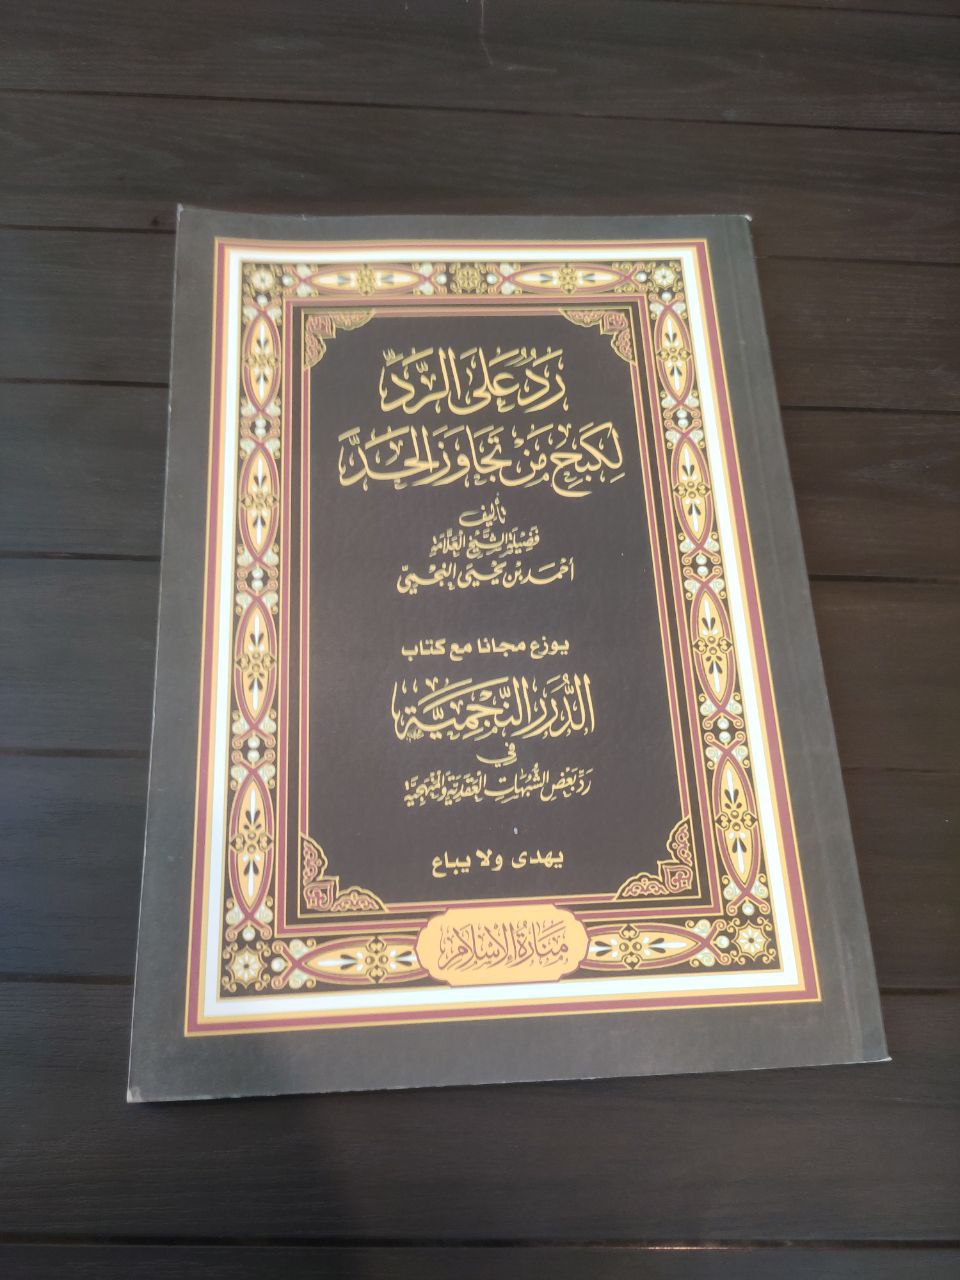 رَدٌّ عَلَى الرَّدِّ
لِكَبْحِ مَنْ تَجَاوَزَ الْحَدَّ
تأليف
فَضِيلَةِ الشَّيْخِ الْعَلَّامَةِ
أَحْمَدَ بْنِ يَحْيَى النَّجْمِيِّ
يوزع مجانا مع كتاب
الدُّرَرُ النَّجْمِيَّة
فِي
رَدِّ بَعْضِ الشُّبُهَاتِ الْعَقَدِيَّةِ وَالْمَنْهَجِيَّةِ
يهدى ولا يباع
مَنَارَةُ الْإِسْلَامِ